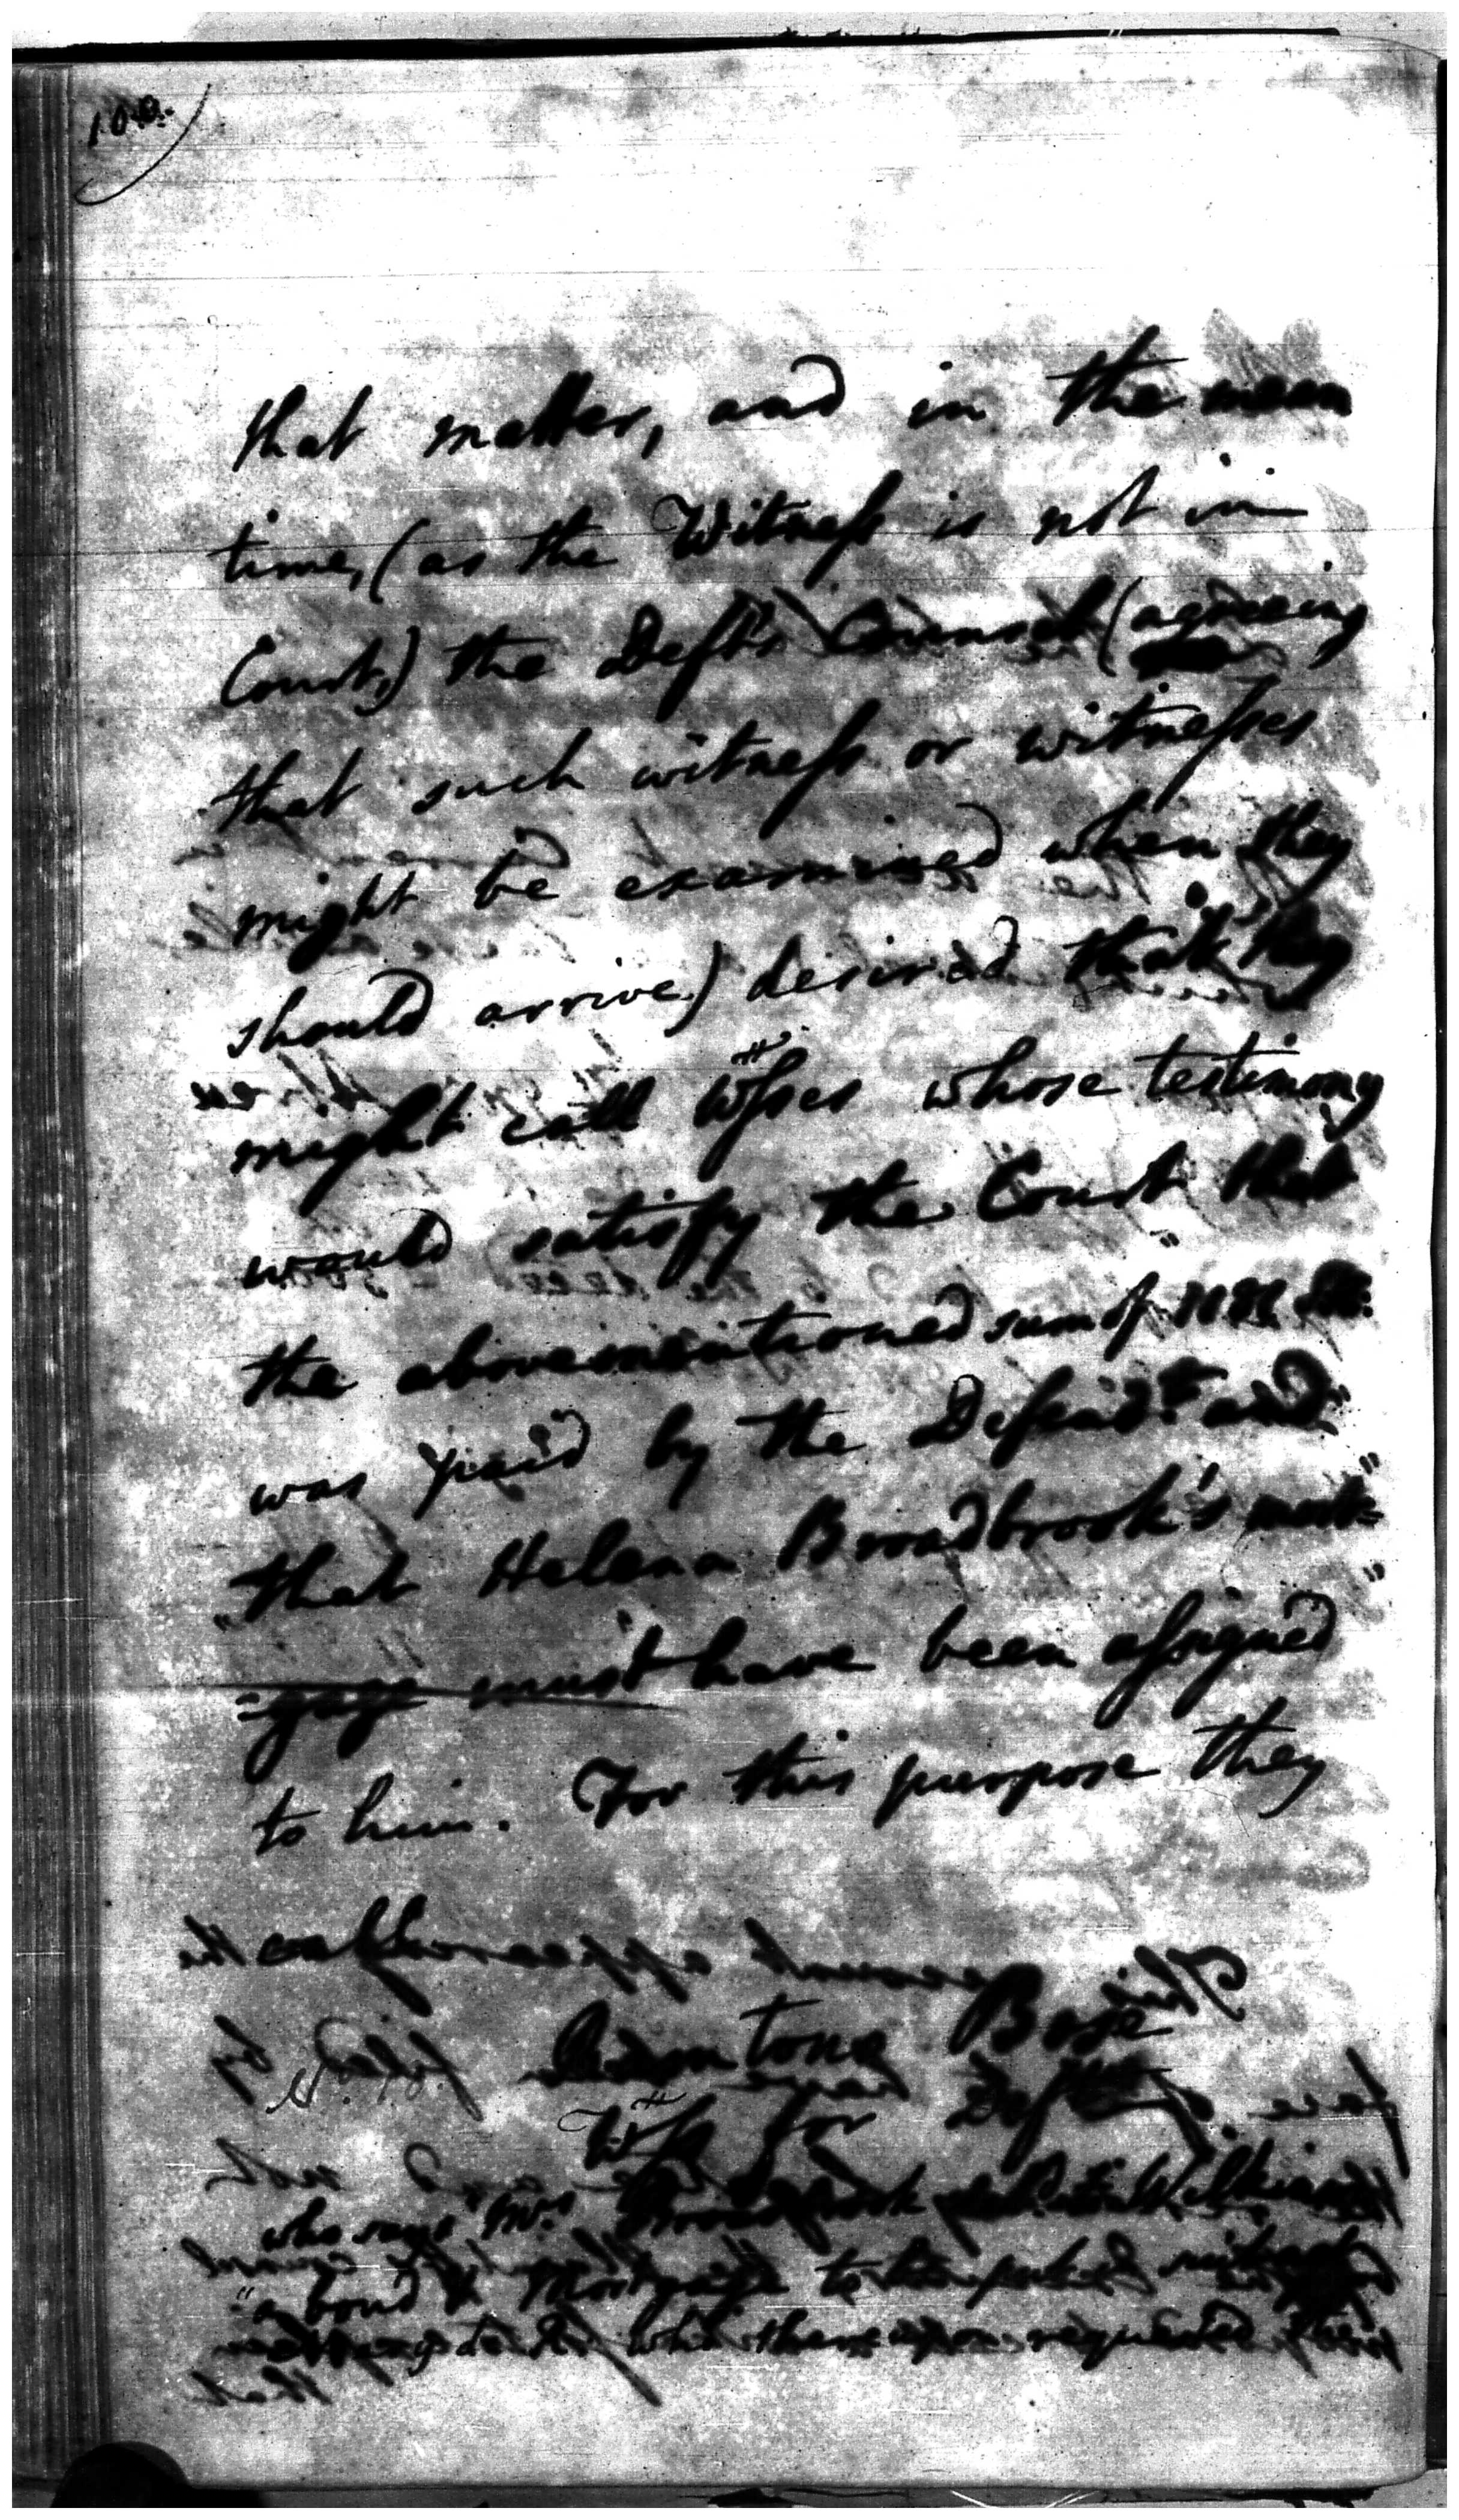 100.
that matter, and in the mean
time, (as the Witness is not in
Court,) the Defts Counsel (agreeing
that such witness or witnesses
might be examined when they
should arrive) desired that they
might call Wsses whose testimony
would satisfy the Court that
the abovementioned sum of
was paid by the Defend.t and"
"that Helena Broadbrook's mort="
=gage must have been assigned"
to him. For this purpose they
call
Bose
Wss for Deft
who says Mrs
"a bond & Mortgage to
who thereupon requested